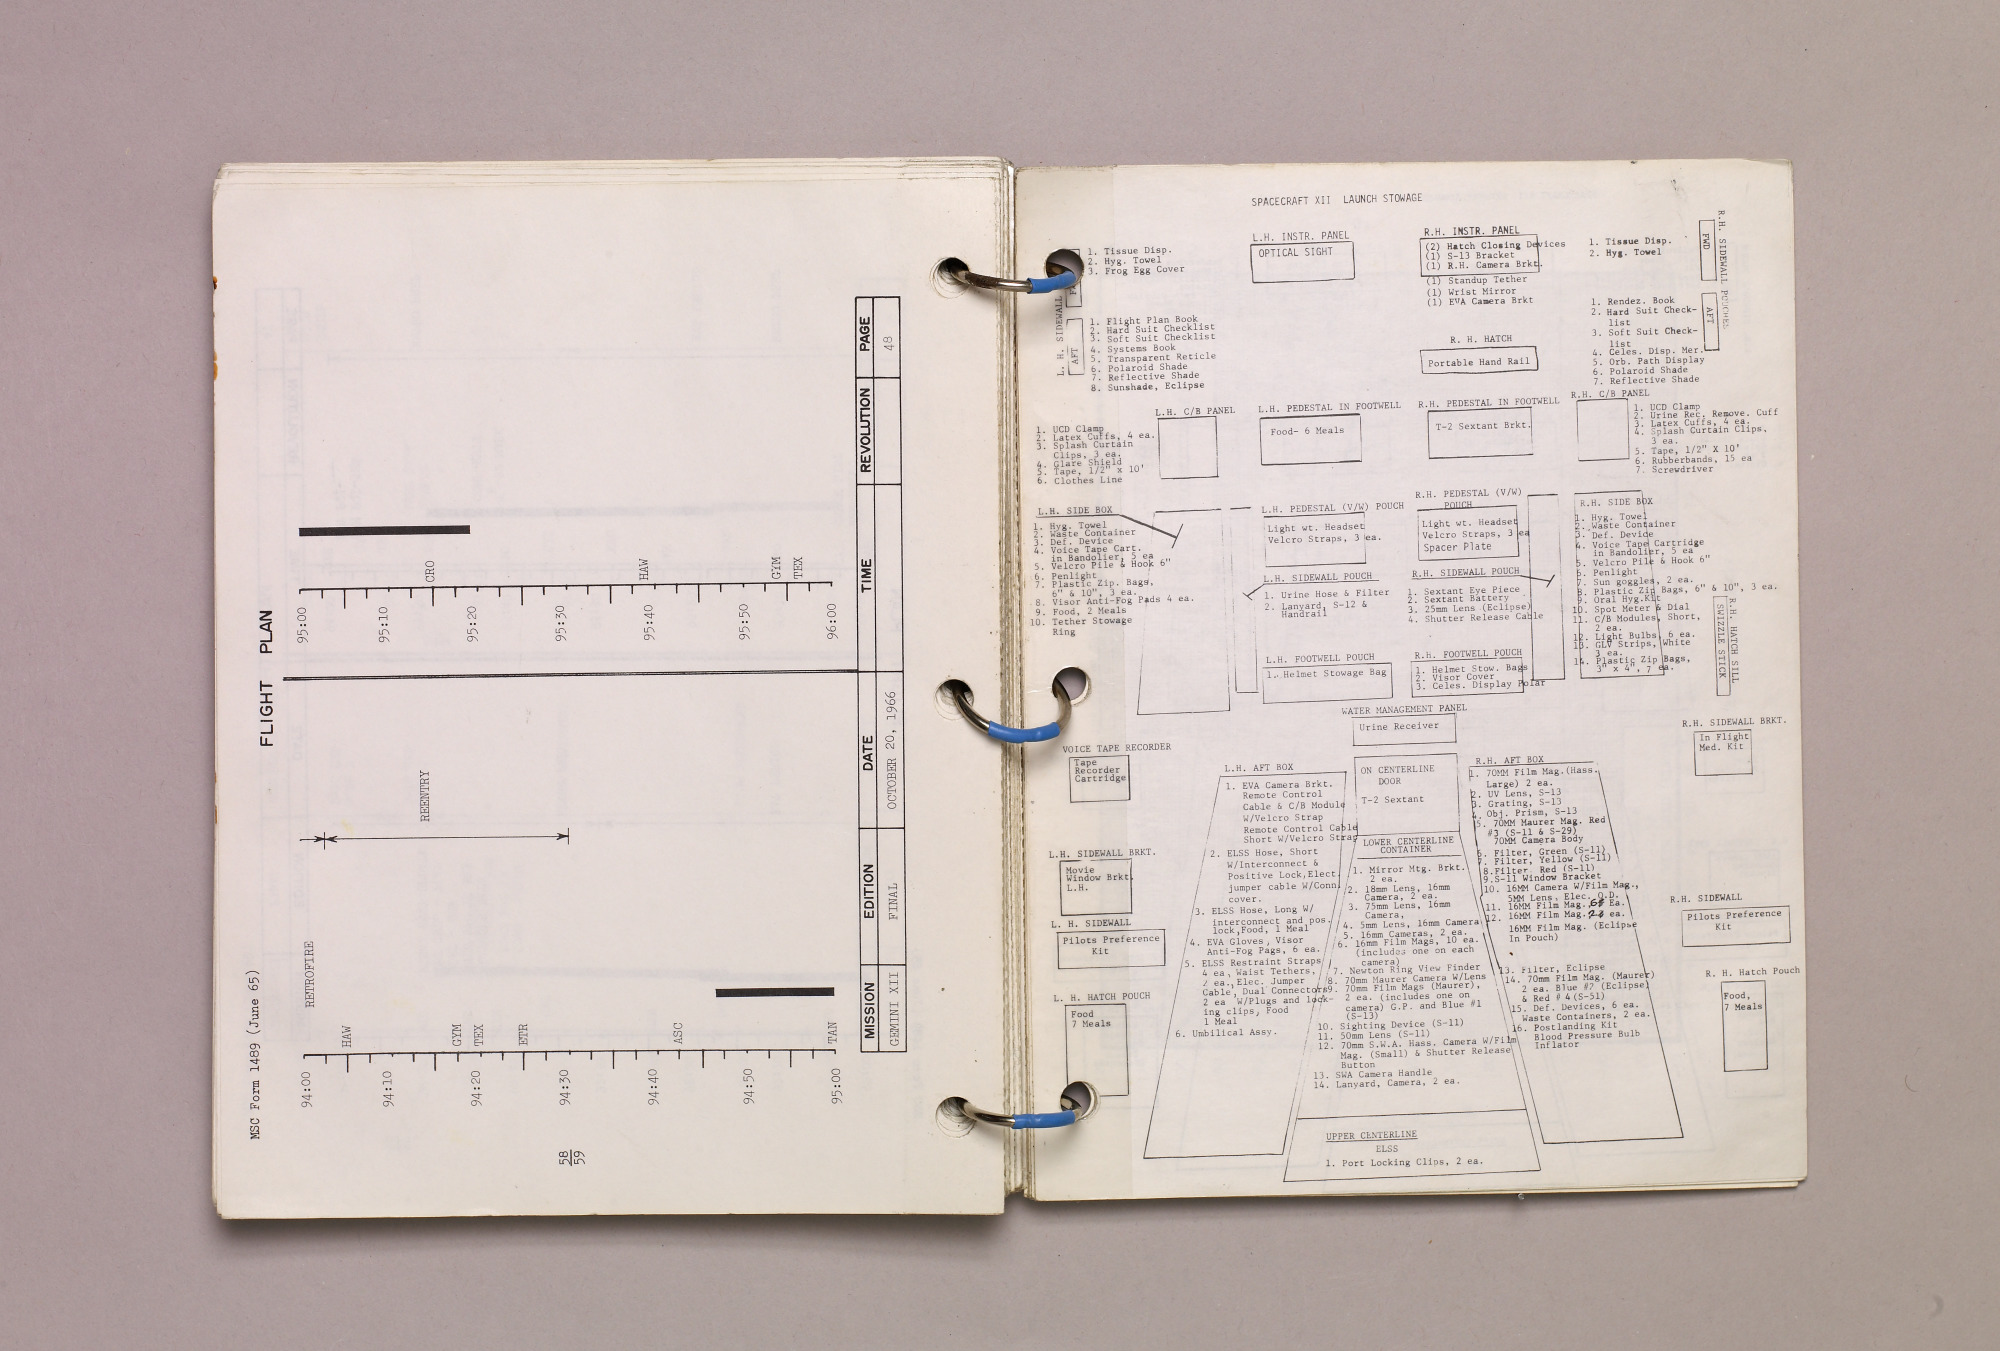 MSC Form 1489 (June 65)
FLIGHT PLAN
94:00
94:10
94:20
94:30
94:40
94:50
95:00
HAW
GYM
TEX
ETR
ASC
TAN
RETROFIRE
REENTRY
95:00
95:10
95:20
95:30
95:40
95:50
96:00
CRO
HAW
GYM
TEX
MISSION
EDITION
DATE
TIME
REVOLUTION
PAGE
GEMINI XII
FINAL
OCTOBER 20, 1966
48
58
59
SPACECRAFT XII LAUNCH STOWAGE
L. H. SIDEWALL
1. Tissue Disp.
2. Hyg. Towel
3. Frog Egg Cover
AFT
1. Flight Plan Book
2. Hard Suit Checklist
3. Soft Suit Checklist
4. Systems Book
5. Transparent Reticle
6. Polaroid Shade
7. Reflective Shade
8. Sunshade, Eclipse
L.H. INSTR. PANEL
OPTICAL SIGHT
R.H. INSTR. PANEL
(2) Hatch Closing Devices
(1) S-13 Bracket
(1) R.H. Camera Brkt.
(1) Standup Tether
(1) Wrist Mirror
(1) EVA Camera Brkt
R. H. HATCH
Portable Hand Rail
R.H. SIDEWALL POUCHES
FWD
1. Tissue Disp.
2. Hyg. Towel
AFT
1. Rendez. Book
2. Hard Suit Check-
list
3. Soft Suit Check-
list
4. Celes. Disp. Mer.
5. Orb. Path Display
6. Polaroid Shade
7. Reflective Shade
L.H. C/B PANEL
1. UCD Clamp
2. Latex Cuffs, 4 ea.
3. Splash Curtain
Clips, 3 ea.
4. Glare Shield
5. Tape, 1/2" x 10'
6. Clothes Line
L.H. PEDESTAL IN FOOTWELL
Food- 6 Meals
R.H. PEDESTAL IN FOOTWELL
T-2 Sextant Brkt.
R.H. C/B PANEL
1. UCD Clamp
2. Urine Rec. Remove. Cuff
3. Latex Cuffs, 4 ea.
4. Splash Curtain Clips,
3 ea.
5. Tape, 1/2" X 10'
6. Rubberbands, 15 ea
7. Screwdriver
L.H. SIDE BOX
1. Hyg. Towel
2. Waste Container
3. Def. Device
4. Voice Tape Cart.
in Bandolier, 5 ea
5. Velcro Pile & Hook 6"
6. Penlight
7. Plastic Zip. Bags,
6" & 10", 3 ea.
8. Visor Anti-Fog Pads 4 ea.
9. Food, 2 Meals
10. Tether Stowage
Ring
L.H. PEDESTAL (V/W) POUCH
Light wt. Headset
Velcro Straps, 3 ea.
L.H. SIDEWALL POUCH
1. Urine Hose & Filter
2. Lanyard, S-12 &
Handrail
L.H. FOOTWELL POUCH
1. Helmet Stowage Bag
R.H. PEDESTAL (V/W)
POUCH
Light wt. Headset
Velcro Straps, 3 ea
Spacer Plate
R.H. SIDEWALL POUCH
1. Sextant Eye Piece
2. Sextant Battery
3. 25mm Lens (Eclipse)
4. Shutter Release Cable
R.H. FOOTWELL POUCH
1. Helmet Stow. Bags
2. Visor Cover
3. Celes. Display Polar
R.H. SIDE BOX
1. Hyg. Towel
2. Waste Container
3. Def. Device
4. Voice Tape Cartridge
in Bandolier, 5 ea
5. Velcro Pile & Hook 6"
6. Penlight
7. Sun goggles, 2 ea.
8. Plastic Zip Bags, 6" & 10", 3 ea.
9. Oral Hyg.Kit
10. Spot Meter & Dial
11. C/B Modules, Short,
2 ea.
12. Light Bulbs, 6 ea.
13. GLV Strips, White
3 ea.
14. Plastic Zip Bags,
3" x 4", 7 ea.
R.H. HATCH SILL
SWIZZLE STICK
WATER MANAGEMENT PANEL
Urine Receiver
VOICE TAPE RECORDER
Tape
Recorder
Cartridge
L.H. SIDEWALL BRKT.
Movie
Window Brkt.
L.H.
L. H. SIDEWALL
Pilots Preference
Kit
L. H. HATCH POUCH
Food
7 Meals
L.H. AFT BOX
1. EVA Camera Brkt.
Remote Control
Cable & C/B Module
W/Velcro Strap
Remote Control Cable
Short W/Velcro Strap
2. ELSS Hose, Short
W/Interconnect &
Positive Lock,Elect.
jumper cable W/Conn.
cover.
3. ELSS Hose, Long W/
interconnect and pos.
lock,Food, 1 Meal
4. EVA Gloves, Visor
Anti-Fog Pags, 6 ea.
5. ELSS Restraint Straps
4 ea, Waist Tethers,
2 ea., Elec. Jumper
Cable, Dual Connectors
2 ea W/Plugs and lock-
ing clips, Food
1 Meal
6. Umbilical Assy.
ON CENTERLINE
DOOR
T-2 Sextant
LOWER CENTERLINE
CONTAINER
1. Mirror Mtg. Brkt.
2 ea.
2. 18mm Lens, 16mm
Camera, 2 ea.
3. 75mm Lens, 16mm
Camera,
4. 5mm Lens, 16mm Camera
5. 16mm Cameras, 2 ea.
6. 16mm Film Mags, 10 ea.
(includes one on each
camera)
7. Newton Ring View Finder
8. 70mm Maurer Camera W/Lens
9. 70mm Film Mags (Maurer),
2 ea. (includes one on
camera) G.P. and Blue #1
(S-13)
10. Sighting Device (S-11)
11. 50mm Lens (S-11)
12. 70mm S.W.A. Hass. Camera W/Film
Mag. (Small) & Shutter Release
Button
13. SWA Camera Handle
14. Lanyard, Camera, 2 ea.
UPPER CENTERLINE
ELSS
1. Port Locking Clips, 2 ea.
R.H. AFT BOX
1. 70MM Film Mag.(Hass.
Large) 2 ea.
2. UV Lens, S-13
3. Grating, S-13
4. Obj. Prism, S-13
5. 70MM Maurer Mag. Red
#3 (S-11 & S-29)
70MM Camera Body
6. Filter, Green (S-11)
7. Filter, Yellow (S-11)
8.Filter, Red (S-11)
9.S-11 Window Bracket
10. 16MM Camera W/Film Mag.,
5MM Lens, Elec. Q.D.
11. 16MM Film Mag. Ea.
12. 16MM Film Mag. ea.
16MM Film Mag. (Eclipse
In Pouch)
13. Filter, Eclipse
14. 70mm Film Mag. (Maurer)
2 ea. Blue #2 (Eclipse)
& Red #4(S-51)
15. Def. Devices, 6 ea.
Waste Containers, 2 ea.
16. Postlanding Kit
Blood Pressure Bulb
Inflator
R.H. SIDEWALL BRKT.
In Flight
Med. Kit
R.H. SIDEWALL
Pilots Preference
Kit
R. H. Hatch Pouch
Food,
7 Meals